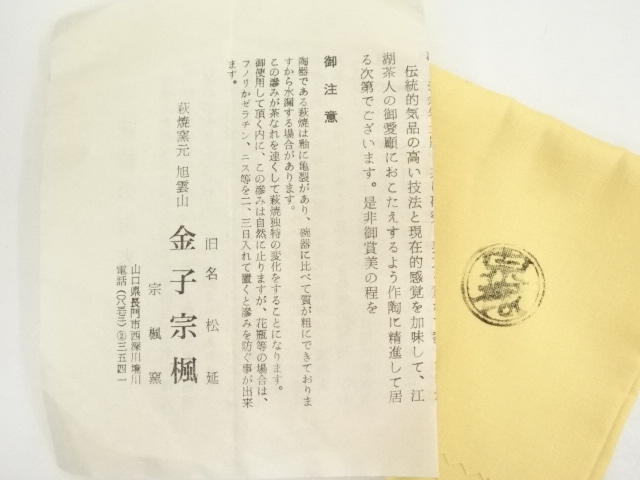 伝統的気品の高い技法と現在的感覚を加味して、江
湖茶人の御愛顧におこたえするよう作陶に精進して居
る次第でございます。是非御賞美の程を
御注意
陶器である萩焼は釉に亀裂があり、磁器に比べて質が粗にできておりま
すから水漏する場合があります。
この滲みが茶なれを速くして萩焼独特の変化をすることになります。
御使用して頂く内に、この滲みは自然に止りますが、花瓶等の場合は、
フノリかゼラチン、ニス等を二、三日入れて置くと滲みを防ぐ事が出来
ます。
萩焼窯元 旭雲山
旧名 松延
金子宗楓
宗楓窯
山口県長門市西深川境川
電話(〇八三七二)②三五四一